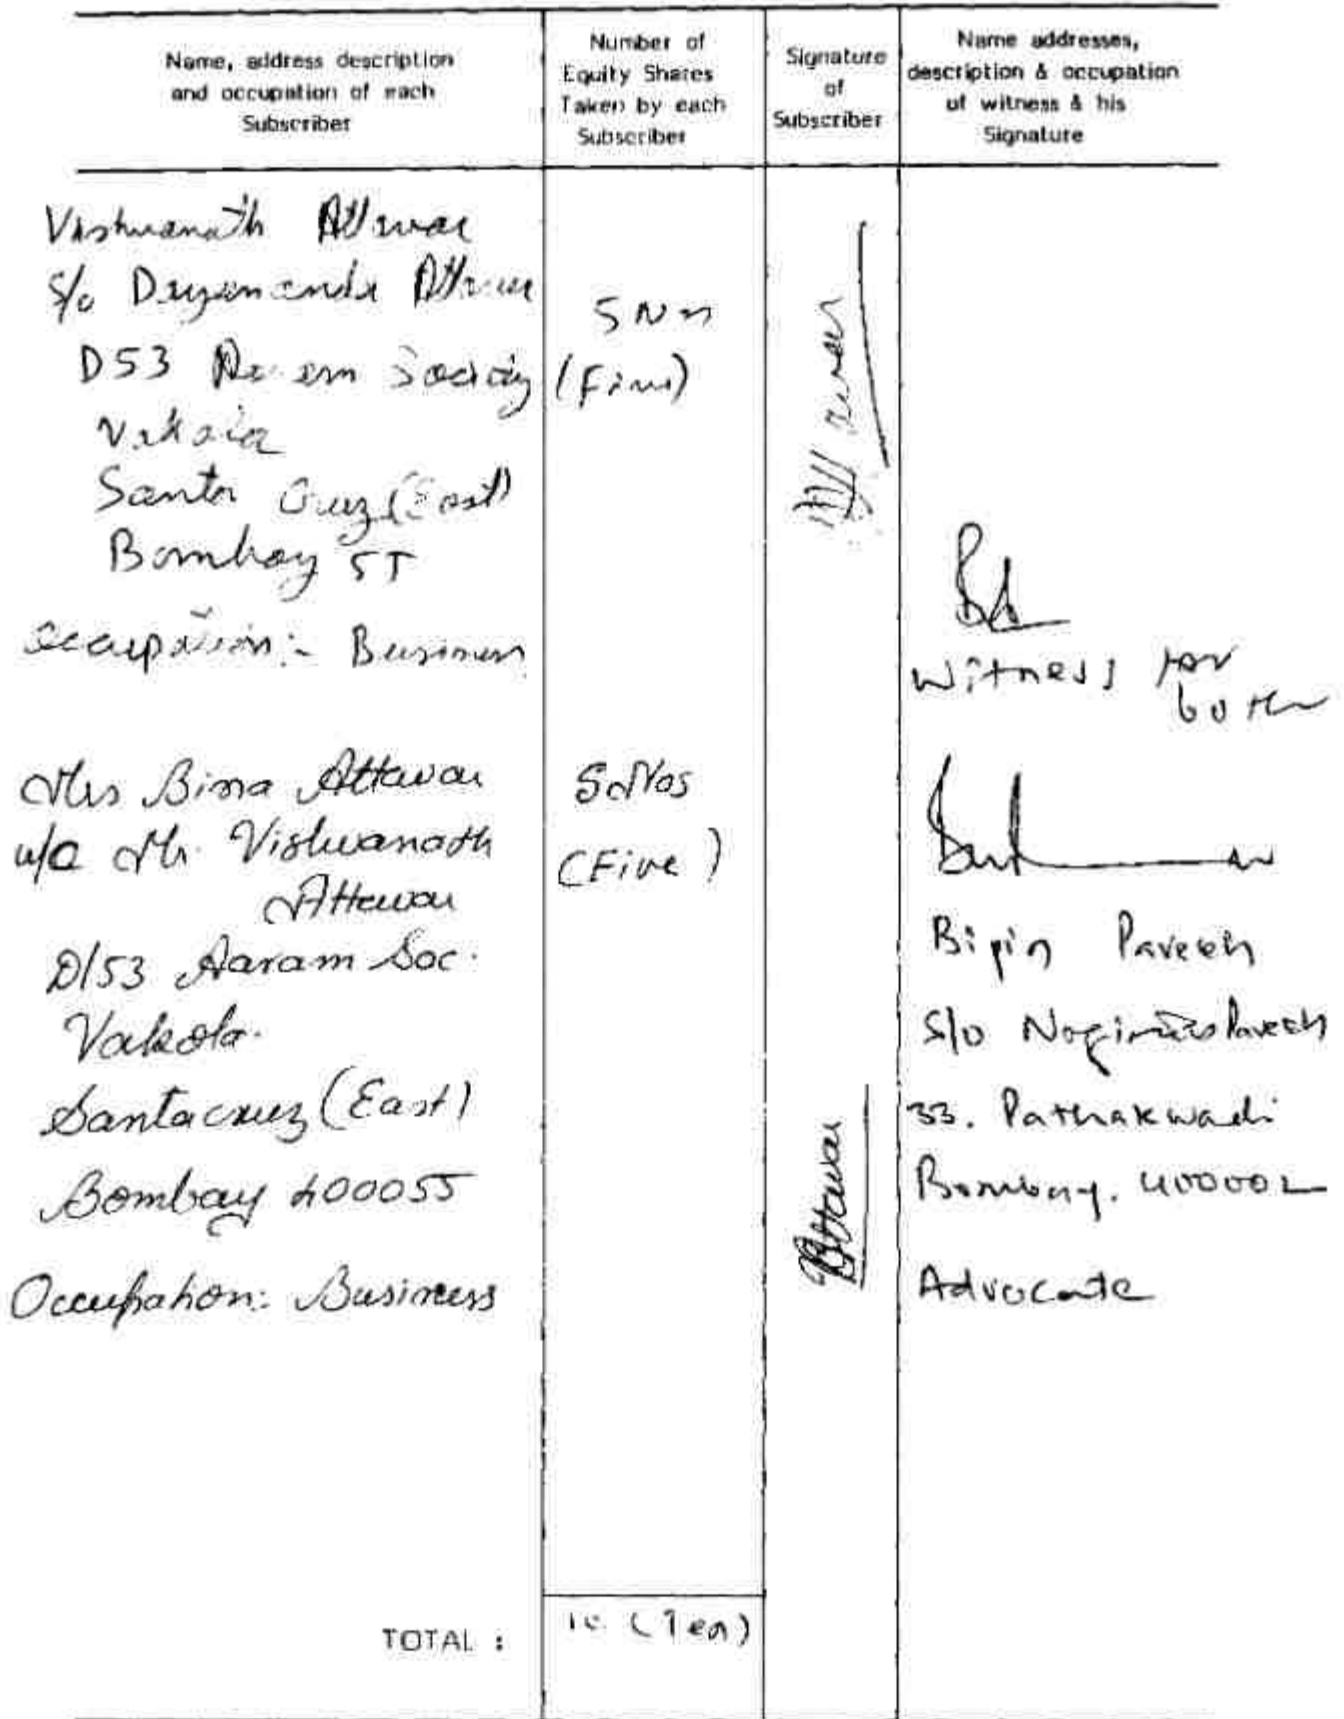 Name, address description
and occupation of each
Subscriber
Number of
Equity Shares
Taken by each
Subscriber
Signature
of
Subscriber
Name addresses,
description & occupation
of witness & his
Signature
Vishwanath Attavar
S/o Dayananda Attavar
D53 Society
Vakola
Santa Cruz (East)
Bombay 55
Occupation:- Business
5 Nos
(Five)
Attavar
Mrs Bina Attavar
w/o Mr. Vishwanath
Attavar
D/53 Aaram Soc.
Vakola.
Santacruz (East)
Bombay 400055
Occupation: Business
5 Nos
(Five)
BAttavar
Witness for
both
Bipin Pareekh
S/o Pareekh
33. Pathakwadi
Bombay. 400002
Advocate
TOTAL :
10 (Ten)